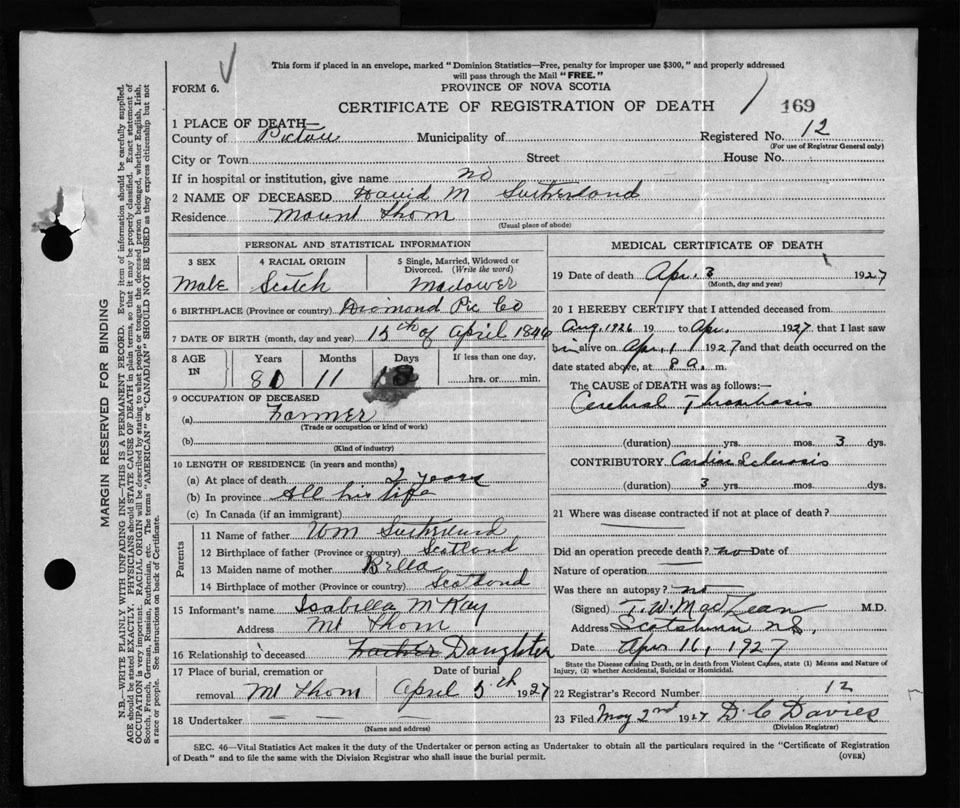 This form if placed in an envelope, marked "Dominion Statistics—Free, penalty for improper use $300," and properly addressed
will pass through the Mail "FREE."
FORM 6.
PROVINCE OF NOVA SCOTIA
CERTIFICATE OF REGISTRATION OF DEATH
169
1 PLACE OF DEATH—
County of Pictou Municipality of Registered No. 12
(For use of Registrar General only)
City or Town Street House No.
If in hospital or institution, give name no
2 NAME OF DECEASED David M Sutherland
Residence Mount Thom
(Usual place of abode)
PERSONAL AND STATISTICAL INFORMATION
3 SEX 4 RACIAL ORIGIN 5 Single, Married, Widowed or
Divorced. (Write the word)
Male Scotch Widower
6 BIRTHPLACE (Province or country) Diamond Pic Co
7 DATE OF BIRTH (month, day and year) 15th of April 1846
8 AGE IN Years Months Days If less than one day,
80 11 hrs. or min.
9 OCCUPATION OF DECEASED
(a) Farmer
(Trade or occupation or kind of work)
(b)
(Kind of industry)
10 LENGTH OF RESIDENCE (in years and months)
(a) At place of death 2 years
(b) In province All his life
(c) In Canada (if an immigrant)
Parents
11 Name of father Wm Sutherland
12 Birthplace of father (Province or country) Scotland
13 Maiden name of mother Bella
14 Birthplace of mother (Province or country) Scotland
15 Informant's name Isabella McKay
Address Mt Thom
16 Relationship to deceased Father Daughter
17 Place of burial, cremation or Date of burial
removal Mt Thom April 5th 1927
18 Undertaker — — —
(Name and address)
MEDICAL CERTIFICATE OF DEATH
19 Date of death Apr. 3 1927
(Month, day and year)
20 I HEREBY CERTIFY that I attended deceased from
Aug. 1926 19 to Apr. 1927, that I last saw
him alive on Apr. 1 1927 and that death occurred on the
date stated above, at 8 a. m.
The CAUSE of DEATH was as follows:—
Cerebral Thrombosis
(duration) yrs. mos. 3 dys.
CONTRIBUTORY Cardiac Sclerosis
(duration) 3 yrs. mos. dys.
21 Where was disease contracted if not at place of death?
Did an operation precede death? no Date of
Nature of operation
Was there an autopsy? no
(Signed) T. W. MacLean M.D.
Address Scotsburn N.S.
Date Apr. 16, 1927
State the Disease causing Death, or in death from Violent Causes, state (1) Means and Nature of
Injury, (2) whether Accidental, Suicidal or Homicidal.
22 Registrar's Record Number 12
23 Filed May 2nd 1927 D. C. Davies
(Division Registrar)
SEC. 46—Vital Statistics Act makes it the duty of the Undertaker or person acting as Undertaker to obtain all the particulars required in the "Certificate of Registration
of Death" and to file the same with the Division Registrar who shall issue the burial permit.
(OVER)
MARGIN RESERVED FOR BINDING
N.B.—WRITE PLAINLY WITH UNFADING INK—THIS IS A PERMANENT RECORD. Every item of information should be carefully supplied.
AGE should be stated EXACTLY. PHYSICIANS should STATE CAUSE OF DEATH in plain terms, so that it may be properly classified. Exact statement of
OCCUPATION is very important. RACIAL ORIGIN will be described by stating to what people or tongue the deceased person belonged, whether English, Irish,
Scotch, French, German, Russian, Ruthenian, etc. The terms "AMERICAN" or "CANADIAN" SHOULD NOT BE USED as they express citizenship but not
a race or people. See instructions on back of Certificate.